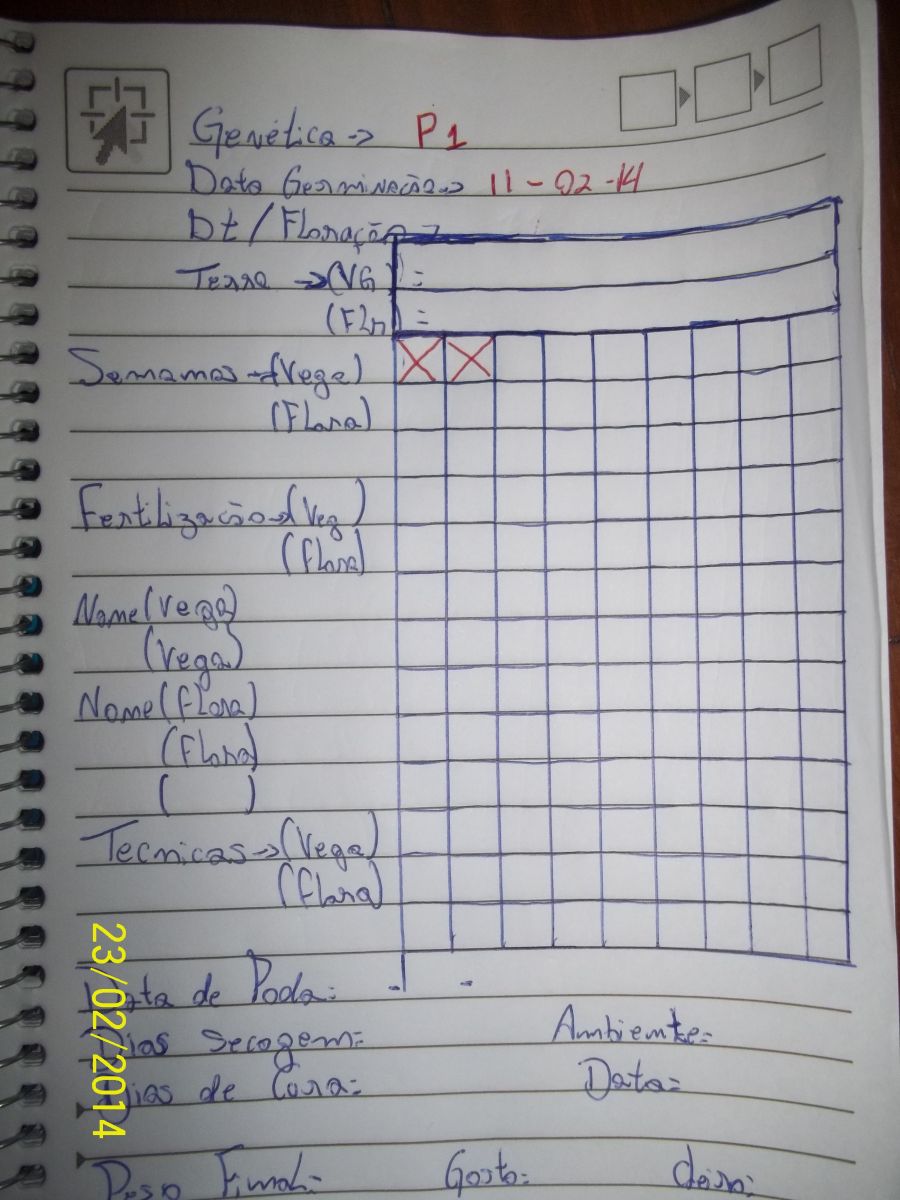 Genética -> P1
Data Germinação -> 11-02-14
Dt/Floração ->
Terra -> (VG) =
(Flr) =
Semanas -> (Vega)
(Flora)
Fertilização -> (Veg)
(Flora)
Nome (Vega)
(Vega)
Nome (Flora)
(Flora)
( )
Tecnicas -> (Vega)
(Flora)
Data de Poda: - -
Dias Secagem= Ambiente=
Dias de Cura= Data=
Peso Final= Gosto:
23/02/2014